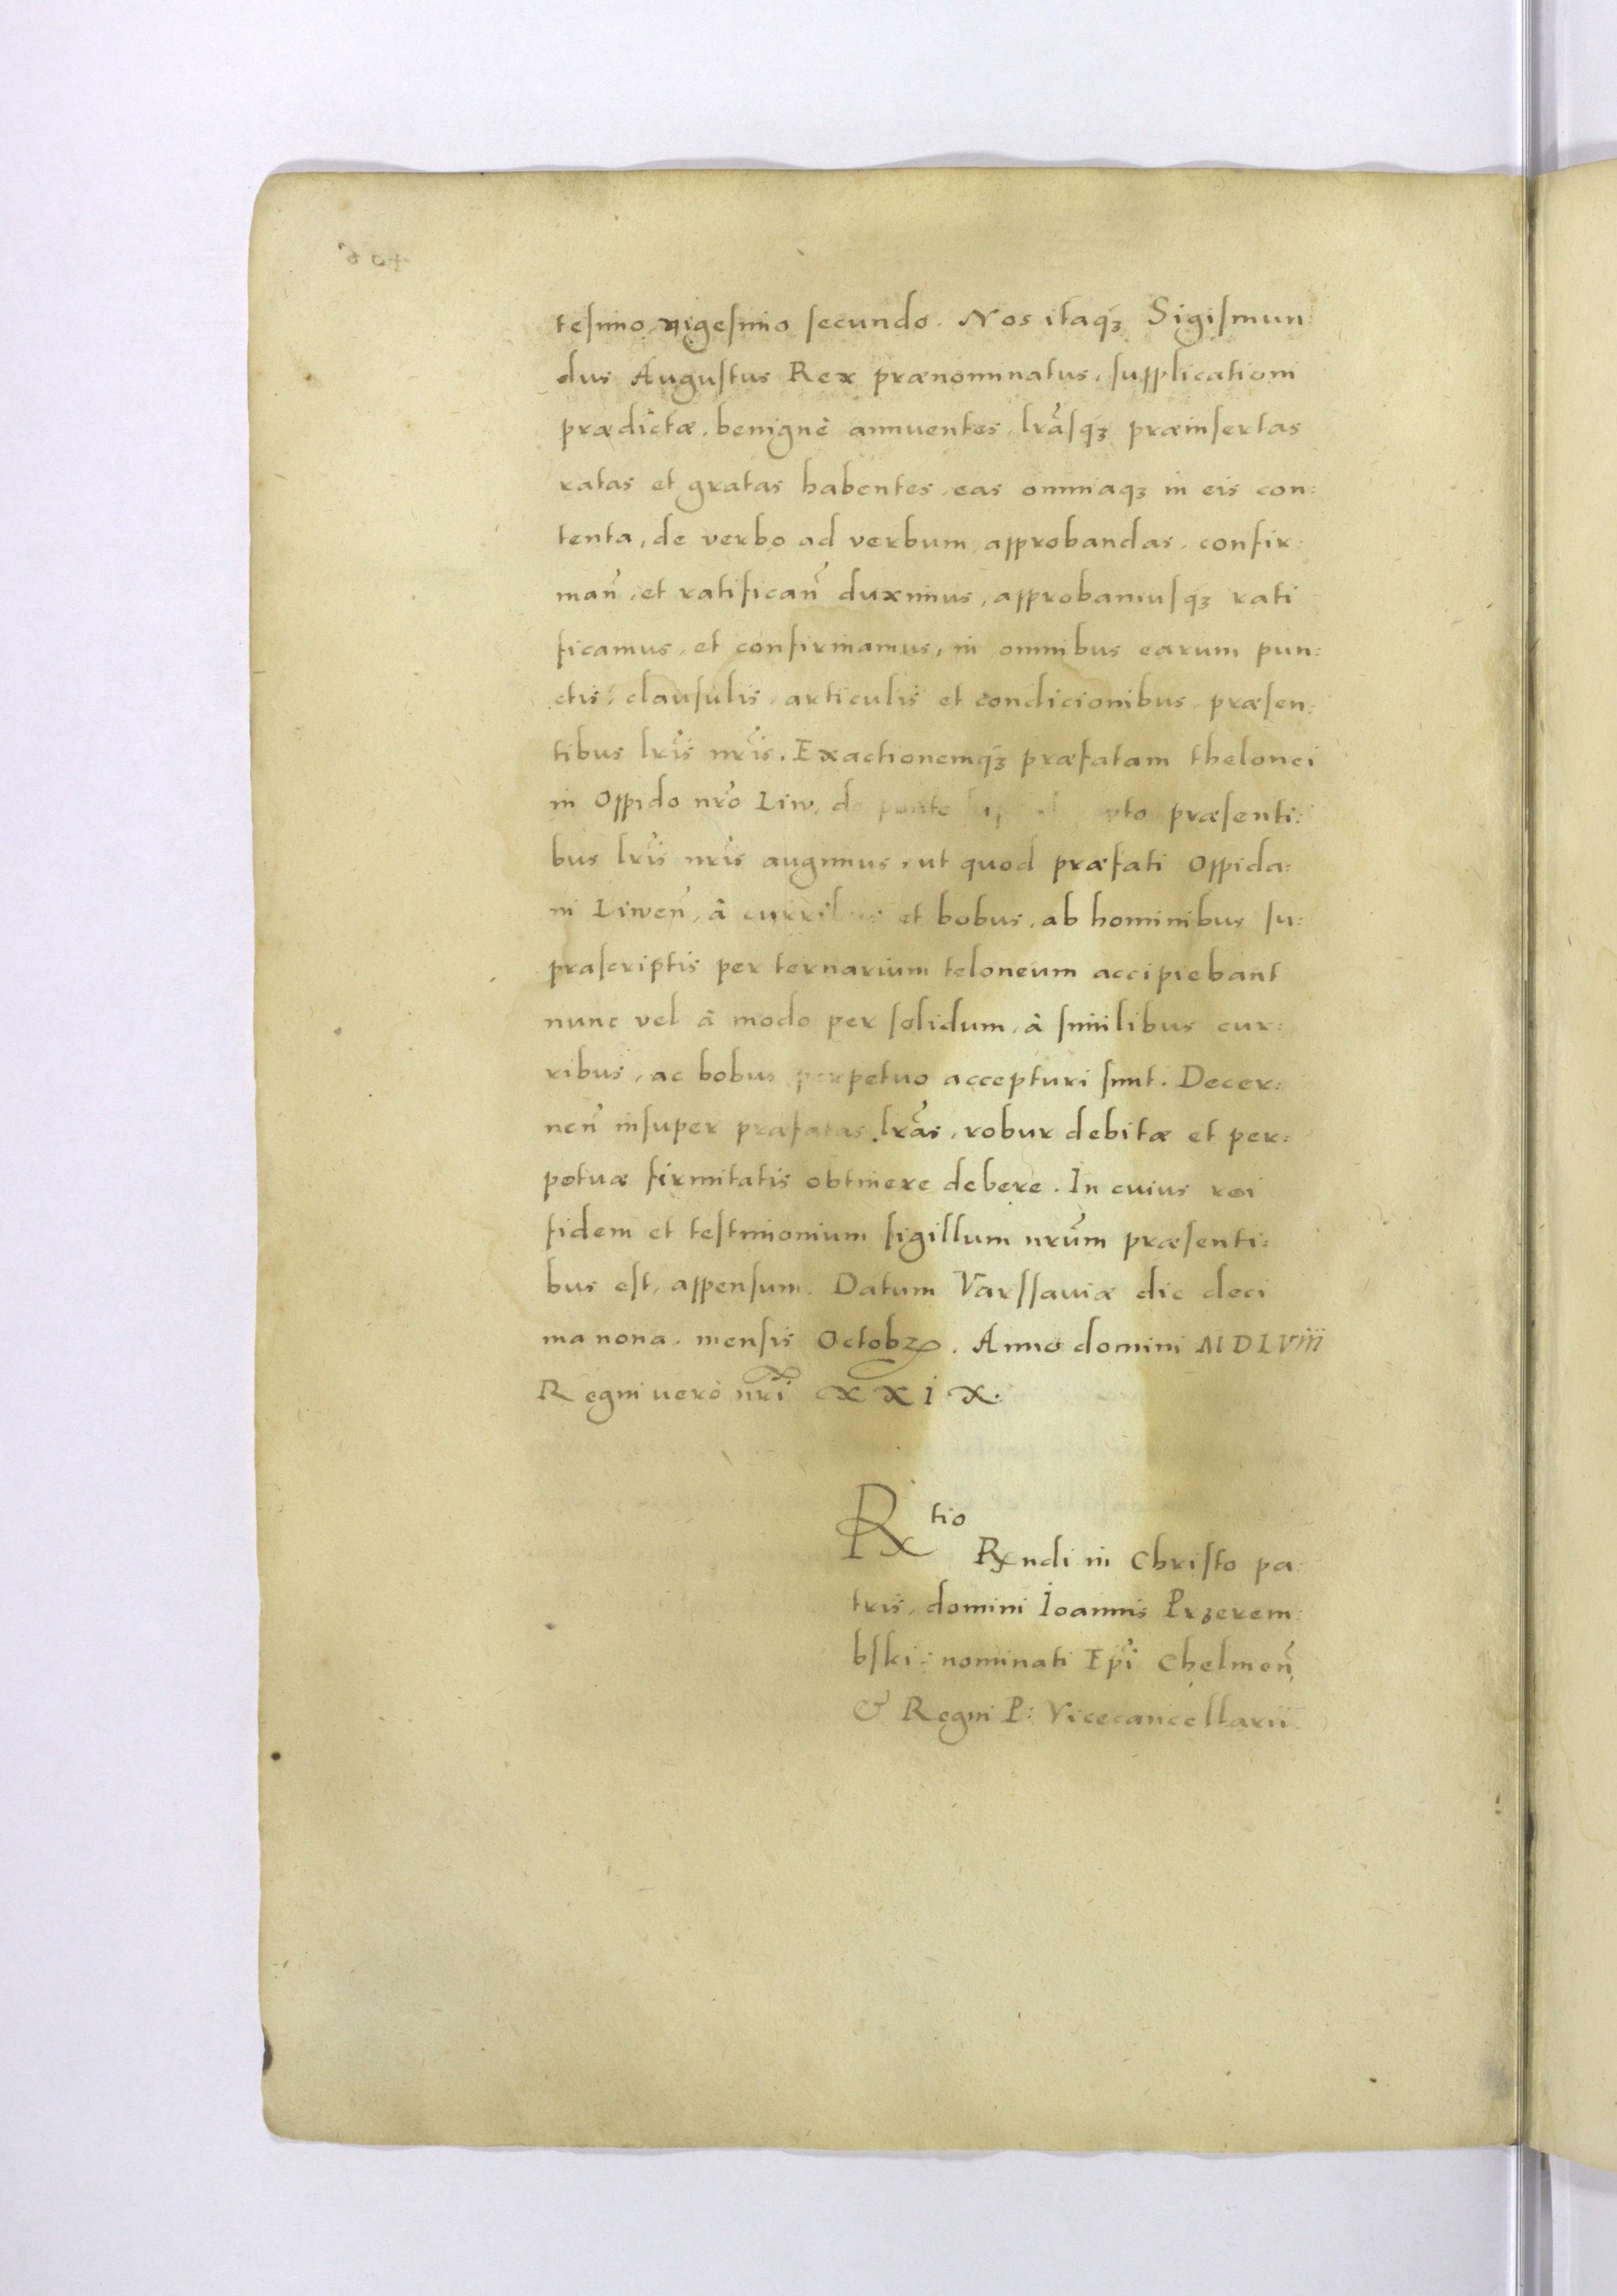 tesimo vigesimo secundo. Nos itaqꝫ Sigismun:
dus Augustus Rex prænominatus, supplicationi
prædictæ, benignè annuentes, lrãsqꝫ præinsertas
ratas et gratas habentes, eas omniaqꝫ in eis con:
tenta, de verbo ad verbum, approbandas, confir:
mañ, et ratificañ duximus, approbamusqꝫ rati
ficamus, et confirmamus, in omnibus earum pun:
ctis, clausulis, articulis et condicionibus, præsen:
tibus lr̃is nr̃is. Exactionemqꝫ præfatam thelonei
in Oppido nr̃o Liw, de ponte præsenti:
bus lr̃is nr̃is augimus, ut quod præfati Oppida:
ni Liweñ, à curribus et bobus, ab hominibus su:
prascriptis per ternarium teloneum accipiebant
nunc vel à modo per solidum, à similibus cur:
ribus, ac bobus perpetuo accepturi sunt. Decer:
neñ insuper præfatas lrãs, robur debitæ et per:
petuæ firmitatis obtinere debere. In cuius rei
fidem et testimonium sigillum nrũm præsenti:
bus est, appensum. Datum Varssaviæ die deci
ma nona, mensis Octobꝝ. Anno domini MDLViii
Regni verò nr̃i xxix.
Rtio
Rndi in Christo pa:
tris, domini Ioannis Przerem:
bski: nominati Ep̃i Chelmeñ
& Regni P: Vicecancellarii.